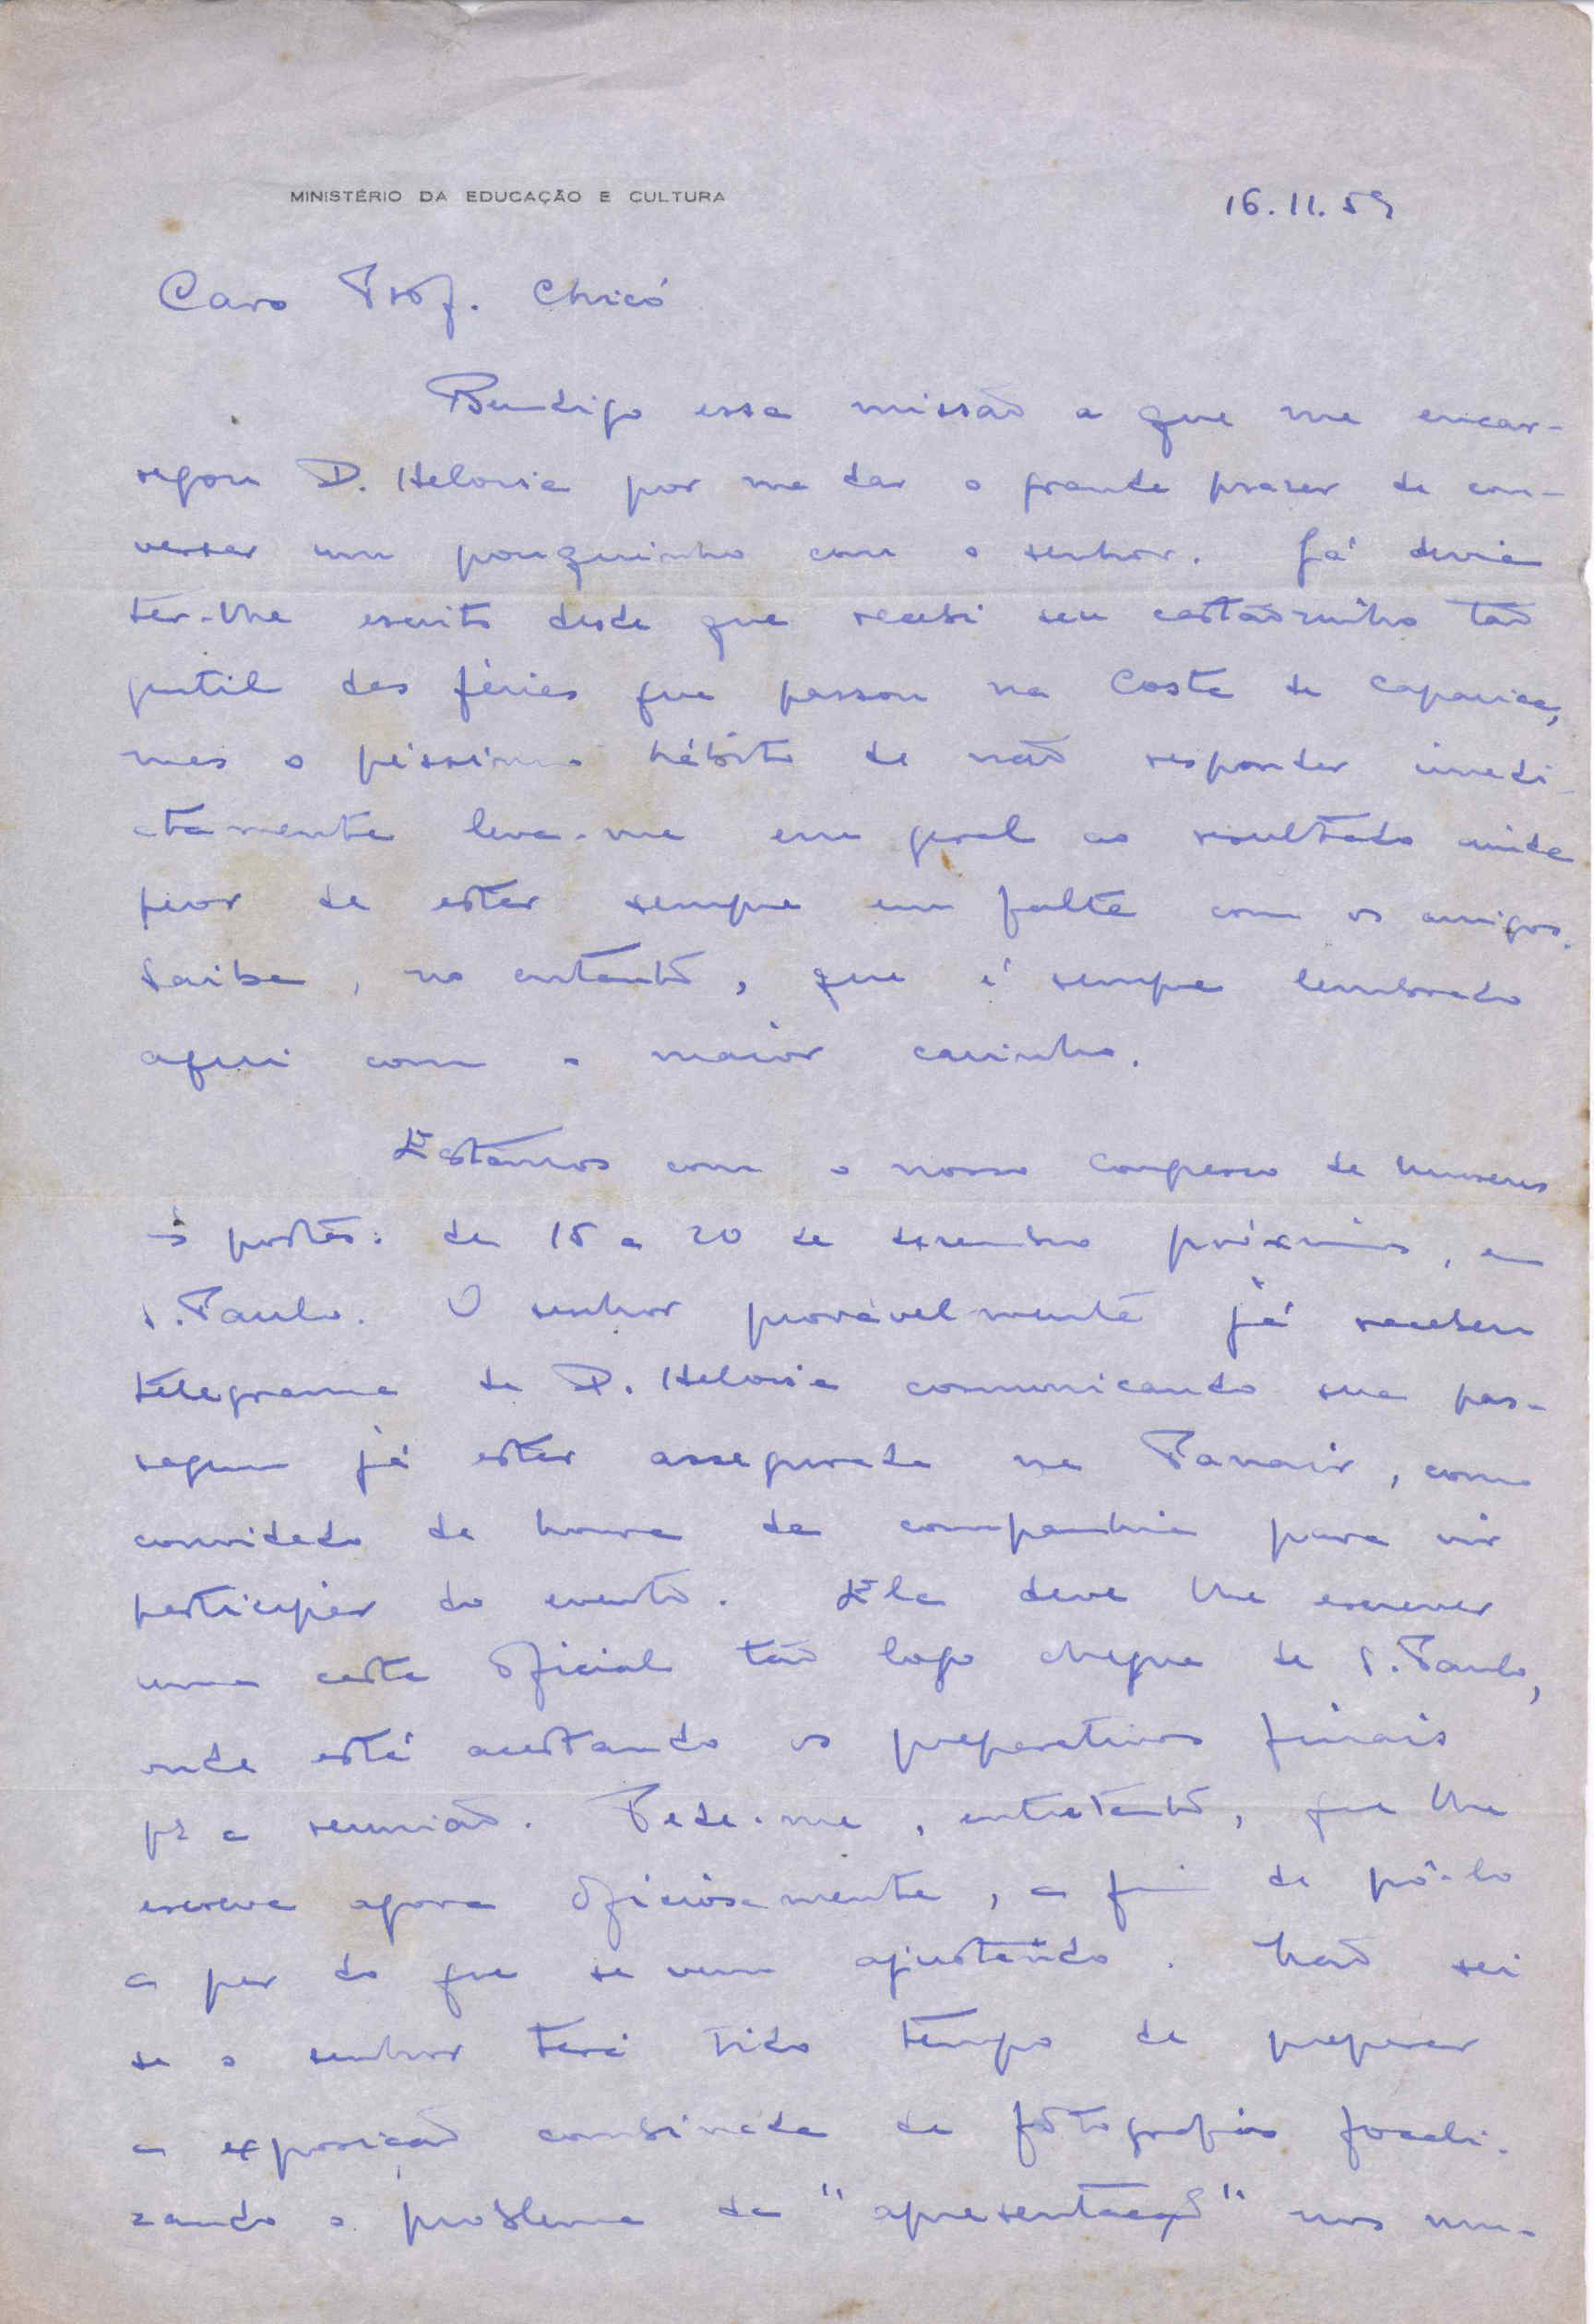 MINISTÉRIO DA EDUCAÇÃO E CULTURA
16.11.59
Caro Prof. Chicó
Bendigo essa missão a que me encar-
regou D. Heloisa por me dar o grande prazer de con-
versar um pouquinho com o senhor. Já devia
ter-lhe escrito desde que recebi seu cartãozinho tão
gentil das férias que passou na Costa de Caparica,
mas o péssimo hábito de não responder imedi-
atamente leva-me em geral ao resultado ainda
peor de estar sempre em falta com os amigos.
Saiba, no entanto, que é sempre lembrado
aqui com o maior carinho.
Estamos com o nosso Congresso de Museus
às portas: de 15 a 20 de dezembro próximo, em
S. Paulo. O senhor provàvelmente já recebeu
telegrama de D. Heloisa comunicando sua pas-
sagem já estar assegurada na Panair, como
convidado de honra da companhia para vir
participar do evento. Ela deve lhe escrever
uma carta oficial tão logo chegue de S. Paulo,
onde está acertando os preparativos finais
pª a reunião. Pede-me, entretanto, que lhe
escreva agora oficiosamente, a fim de pô-lo
a par do que se vem ajustando. Não sei
se o senhor terá tido tempo de preparar
a exposição combinada de fotografias focali-
zando o problema da "apresentação" nos mu-